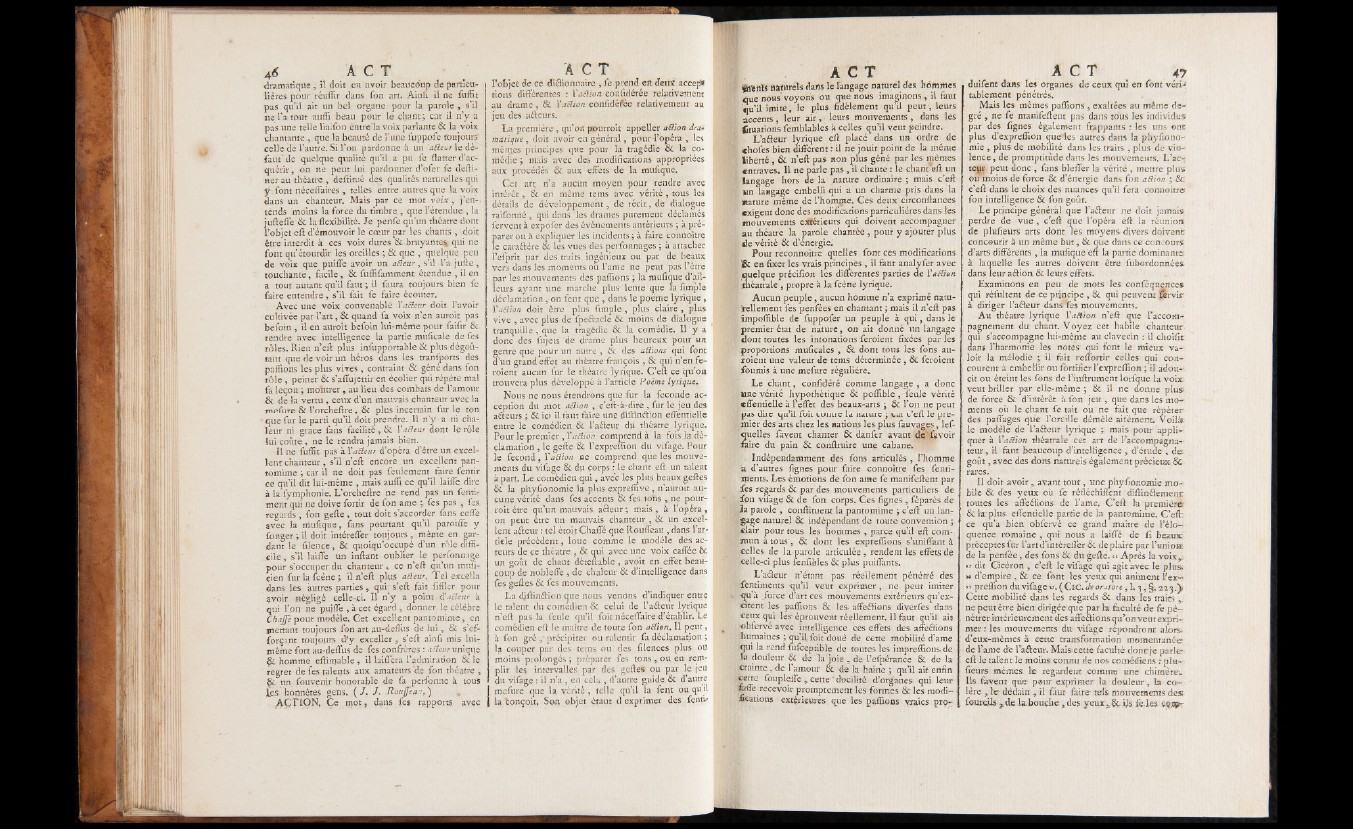 46 A C T
dramatique, il doit en avoir beaucoup de particu-
lières pour réussir dans son art. Ainsi il ne suffit
pas qu'il ait un bel organe pour la parole, s'il
ne l'a tout aussi beau pour le chant; car il n'y a
pas une telle liaison entre la voix parlante & la voix
chantante, que la beauté de l'une suppose toujours
celle de l'autre. Si l'on pardonne à un acteur le dé-
faut de quelque qualité qu'il a pu se flatter d'ac-
quérir, on ne peut lui pardonner d'oser se desti-
ner au théatre, destitué des qualités naturelles qui
y sont nécessaires, telles entre autres que la voix
dans un chanteur. Mais par ce mot voix, j'en-
tends moins la force du timbre, que l'étendue, la
justesse & la flexibilité. Je pense qu'un théatre dont
l'objet est d'émouvoir le cœur par les chants, doit
être interdit à ces voix dures & bruyantes qui ne
font qu'étourdir les oreilles; & que, quelque peu
de voix que puisse avoir un acteur, s'il l'a juste,
touchante, facile, & suffisamment étendue, il en
a tout autant qu'il faut; il saura toujours bien se
faire entendre, s'il sait se faire écouter.
Avec une voix convenable l'acteur doit l'avoir
cultivée par l'art, & quand sa voix n'en auroit pas
besoin, il en auroit besoin lui-même pour saisir &
rendre avec intelligence la partie musicale de ses
rôles. Rien n'est plus insupportable & plus dégoû-
tant que de voir un héros dans les transports des
passions les plus vives, contraint & gêné dans son
rôle, peiner & s'assujetir en écolier qui répète mal
sa leçon; montrer, au lieu des combats de l'amour
& de la vertu, ceux d'un mauvais chanteur avec la
mesure & l'orchestre, & plus incertain sur le ton
que sur le parti qu'il doit prendre. Il n'y a ni cha-
leur ni grace sans facilité, & l'acteur dont le rôle
lui coûte, ne le rendra jamais bien.
Il ne suffit pas à l'acteur d'opéra d'être un excel-
lent chanteur, s'il n'est encore un excellent pan-
tomime; car il ne doit pas seulement faire sentir
ce qu'il dit lui-même, mais aussi ce qu'il laisse dire
à la symphonie. L'orchestre ne rend pas un senti-
ment qui ne doive sortir de son ame; ses pas, ses
regards, son geste, tout doit s'accorder sans cesse
avec la musique, sans pourtant qu'il paroisse y
songer; il doit intéresser toujours, même en gar-
dant le silence, & quoiqu'occupé d'un rôle diffi-
cile, s'il laisse un instant oublier le personnage
pour s'occuper du chanteur, ce n'est qu'un musi-
cien sur la scène; il n'est plus acteur. Tel excella
dans les autres parties, qui s'est fait siffler pour
avoir négligé celle-ci. Il n'y a point d'acteur à
qui l'on ne puisse, à cet égard, donner le célèbre
Chassé pour modèle. Cet excellent pantomime, en
mettant toujours son art au-dessus de lui, & s'ef-
forçant toujours d'y exceller, s'est ainsi mis lui-
même fort au-dessus de ses confrères: acteur unique
& homme estimable, il laissera l'admiration & le
regret de ses talents aux amateurs de son théatre,
& un souvenir honorable de sa personne à tous
les honnêtes gens. ( J. J. Rousseau, )
ACTION. Ce mot, dans ses rapports avec
A C T
l'objet de ce dictionnaire, se prend en deux accep-
tions différentes : l'action considérée relativement
au drame, & l'action considérée relativement au
jeu des acteurs.
La première, qu'on pourroit appeller action dra-
matique, doit avoir en général, pour l'opéra, les
mêmes principes que pour la tragédie & la co-
médie; mais avec des modifications appropriées
aux procédés & aux effets de la musique.
Cet art n'a aucun moyen pour rendre avec
intérêt, & en même tems avec vérité, tous les
détails de développement, de récit, de dialogue
raisonné, qui dans les drames purement déclamés
servent à exposer des évènements antérieurs; à pré-
parer ou à expliquer les incidents; à faire connoître
le caractère & les vues des personnages; à attacher
l'esprit par des traits ingénieux ou par de beaux
vers dans les moments où l'ame ne peut pas l'être
par les mouvements des passions; la musique d'ail-
leurs ayant une marche plus lente que la simple
déclamation, on sent que, dans le poëme lyrique,
l'action doit être plus simple, plus claire, plus
vive, avec plus de spectacle & moins de dialogue
tranquille, que la tragédie & la comédie. Il y a
donc des sujets de drame plus heureux pour un
genre que pour un autre, & des actions qui font
d'un grand effet au théatre françois, & qui n'en fe-
roient aucun sur le théatre lyrique. C'est ce qu'on
trouvera plus développé à l'article Poëme lyrique.
Nous ne nous étendrons que sur la seconde ac-
ception du mot action, c'est-à-dire, sur le jeu des
acteurs; & ici il faut faire une distinction essentielle
entre le comédien & l'acteur du théatre lyrique.
Pour le premier, l'action comprend à la fois la dé-
clamation, le geste & l'expression du visage. Pour
le second, l'action ne comprend que les mouve-
ments du visage & du corps : le chant est un talent
à part. Le comédien qui, avec les plus beaux gestes
& la physionomie la plus expressive, n'auroit au-
cune vérité dans ses accents & ses tons, ne pour-
roit être qu'un mauvais acteur; mais, à l'opéra,
on peut être un mauvais chanteur, & un excel-
lent acteur : tel étoit Chassé que Rousseau, dans l'ar-
ticle précédent, loue comme le modèle des ac-
teurs de ce théatre, & qui avec une voix cassée &
un goût de chant détestable, avoit en effet beau-
coup de noblesse, de chaleur & d'intelligence dans
ses gestes & ses mouvements.
La distinction que nous venons d'indiquer entre
le talent du comédien & celui de l'acteur lyrique
n'est pas la seule qu'il soit nécessaire d'établir. Le
comédien est le maître de toute son action. Il peut,
à son gré, précipiter ou ralentir sa déclamation;
la couper par des tems ou des silences plus ou
moins prolongés; préparer ses tons, ou en rem-
plir les intervalles par des gestes ou par le jeu
du visage : il n'a, en cela, d'autre guide & d'autre
mesure que la vérité, telle qu'il la sent ou qu'il
la conçoit. Son objet étant d'exprimer des senti-
A C T
ments naturels dans le langage naturel des hommes
que nous voyons ou que nous imaginons, il faut
qu'il imite, le plus fidèlement qu'il peut, leurs
accents, leur air, leurs mouvements, dans les
situations semblables à celles qu'il veut peindre.
L'acteur lyrique est placé dans un ordre de
choses bien différent : il ne jouit point de la même
liberté, & n'est pas non plus gêné par les mêmes
entraves. Il ne parle pas, il chante : le chant est un
langage hors de la nature ordinaire; mais c'est
un langage embelli qui a un charme pris dans la
nature même de l'homme. Ces deux circonstances
exigent donc des modifications particulières dans les
mouvements extérieurs qui doivent accompagner
au théatre la parole chantée, pour y ajouter plus
de vérité & d'énergie.
Pour reconnoître quelles sont ces modifications
& en fixer les vrais principes, il faut analyser avec
quelque précision les différentes parties de l'action
théatrale, propre à la scène lyrique.
Aucun peuple, aucun homme n'a exprimé natu-
rellement ses pensées en chantant; mais il n'est pas
impossible de supposer un peuple à qui, dans le
premier état de nature, on ait donné un langage
dont toutes les intonations seroient fixées par les
proportions musicales, & dont tous les sons au-
roient une valeur de tems déterminée, & seroient
soumis à une mesure régulière.
Le chant, considéré comme langage, a donc
une vérité hypothétique & possible, seule vérité
essentielle à l'effet des beaux-arts; & l'on ne peut
pas dire qu'il soit contre la nature; car c'est le pre-
mier des arts chez les nations les plus sauvages, les-
quelles savent chanter & danser avant de savoir
faire du pain & construire une cabane.
Indépendamment des sons articulés, l'homme
a d'autres signes pour faire connoître ses senti-
ments. Les émotions de son ame se manifestent par
ses regards & par des mouvements particuliers de
son visage & de son corps. Ces signes, séparés de
la parole, constituent la pantomime; c'est un lan-
gage naturel & indépendant de toute convention;
clair pour tous les hommes, parce qu'il est com-
mun à tous, & dont les expressions s'unissant à
celles de la parole articulée, rendent les effets de
celle-ci plus sensibles & plus puissants.
L'acteur n'étant pas réellement pénétré des
sentiments qu'il veut exprimer, ne peut imiter
qu'à force d'art ces mouvements extérieurs qu'ex-
citent les passions & les affections diverses dans
ceux qui les éprouvent réellement. Il faut qu'il ait
observé avec intelligence ces effets des affections
humaines; qu'il soit doué de cette mobilité d'ame
qui la rend susceptible de toutes les impressions de
la douleur & de la joie, de l'espérance & de la
crainte, de l'amour & de la haine; qu'il ait enfin
cette souplesse, cette docilité d'organes qui leur
fasse recevoir promptement les formes & les modi-
fications extérieures que les passions vraies pro-
A C T 47
duisent dans les organes de ceux qui en sont véri-
tablement pénétrés.
Mais les mêmes passions, exaltées au même de-
gré, ne se manifestent pas dans tous les individus
par des signes également frappants : les uns ont
plus d'expression que les autres dans la physiono-
mie, plus de mobilité dans les traits, plus de vio-
lence, de promptitude dans les mouvements. L'ac-
teur peut donc, sans blesser la vérité, mettre plus
ou moins de force & d'énergie dans son action; &
c'est dans le choix des nuances qu'il fera connoître
son intelligence & son goût.
Le principe général que l'acteur ne doit jamais
perdre de vue, c'est que l'opéra est la réunion
de plusieurs arts dont les moyens divers doivent
concourir à un même but, & que dans ce concours
d'arts différents, la musique est la partie dominante
à laquelle les autres doivent être subordonnées
dans leur action & leurs effets.
Examinons en peu de mots les conséquences
qui résultent de ce principe, & qui peuvent servir
à diriger l'acteur dans ses mouvements.
Au théatre lyrique l'action n'est que l'accom-
pagnement du chant. Voyez cet habile chanteur
qui s'accompagne lui-même au clavecin : il choisit
dans l'harmonie les notes qui font le mieux va-
loir la mélodie; il fait ressortir celles qui con-
courent à embellir ou fortifier l'expression; il adou-
cit ou éteint les sons de l'instrument lorsque la voix
veut briller par elle-même; & il ne donne plus
de force & d'intérêt à son jeu, que dans les mo-
ments où le chant se tait ou ne fait que répéter
des passages que l'oreille démêle aisément. Voilà
le modèle de l'acteur lyrique; mais pour appli-
quer à l'action théatrale cet art de l'accompagna-
teur, il faut beaucoup d'intelligence, d'étude, de
goût, avec des dons naturels également précieux &
rares.
Il doit avoir, avant tout, une physionomie mo-
bile & des yeux où se réfléchissent distinctement
toutes les affections de l'ame. C'est la première
& la plus essentielle partie de la pantomime. C'est
ce qu'a bien observé ce grand maître de l'élo-
quence romaine, qui nous a laissé de si beaux
préceptes sur l'art d'intéresser & de plaire par l'union
de la pensée, des sons & du geste. « Après la voix,
» dit Cicéron, c'est le visage qui agit avec le plus
» d'empire, & ce sont les yeux qui animent l'ex-
» pression du visage ». ( Cic. de orator. l. 3, §. 223.)
Cette mobilité dans les regards & dans les traits
ne peut être bien dirigée que par la faculté de se pé-
nétrer intérieurement des affections qu'on veut expri-
mer : les mouvements du visage répondront alors
d'eux-mêmes à cette transformation momentanée
de l'ame de l'acteur. Mais cette faculté dont je parle
est le talent le moins connu de nos comédiens : plu-
sieurs mêmes le regardent comme une chimère.
Ils savent que pour exprimer la douleur, la co-
lère, le dédain, il faut faire tels mouvements des
sourcils, de la bouche, des yeux, & ils se les